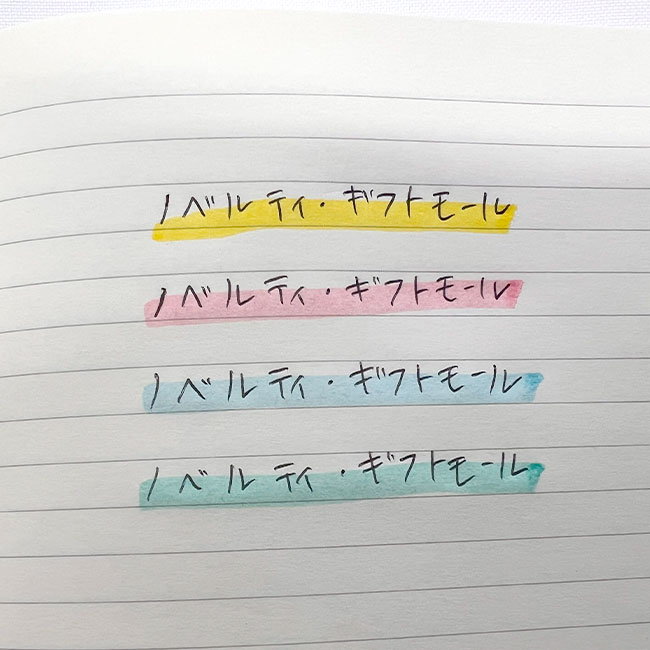 ノベルティ・ギフトモール
ノベルティ・ギフトモール
ノベルティ・ギフトモール
ノベルティ・ギフトモール